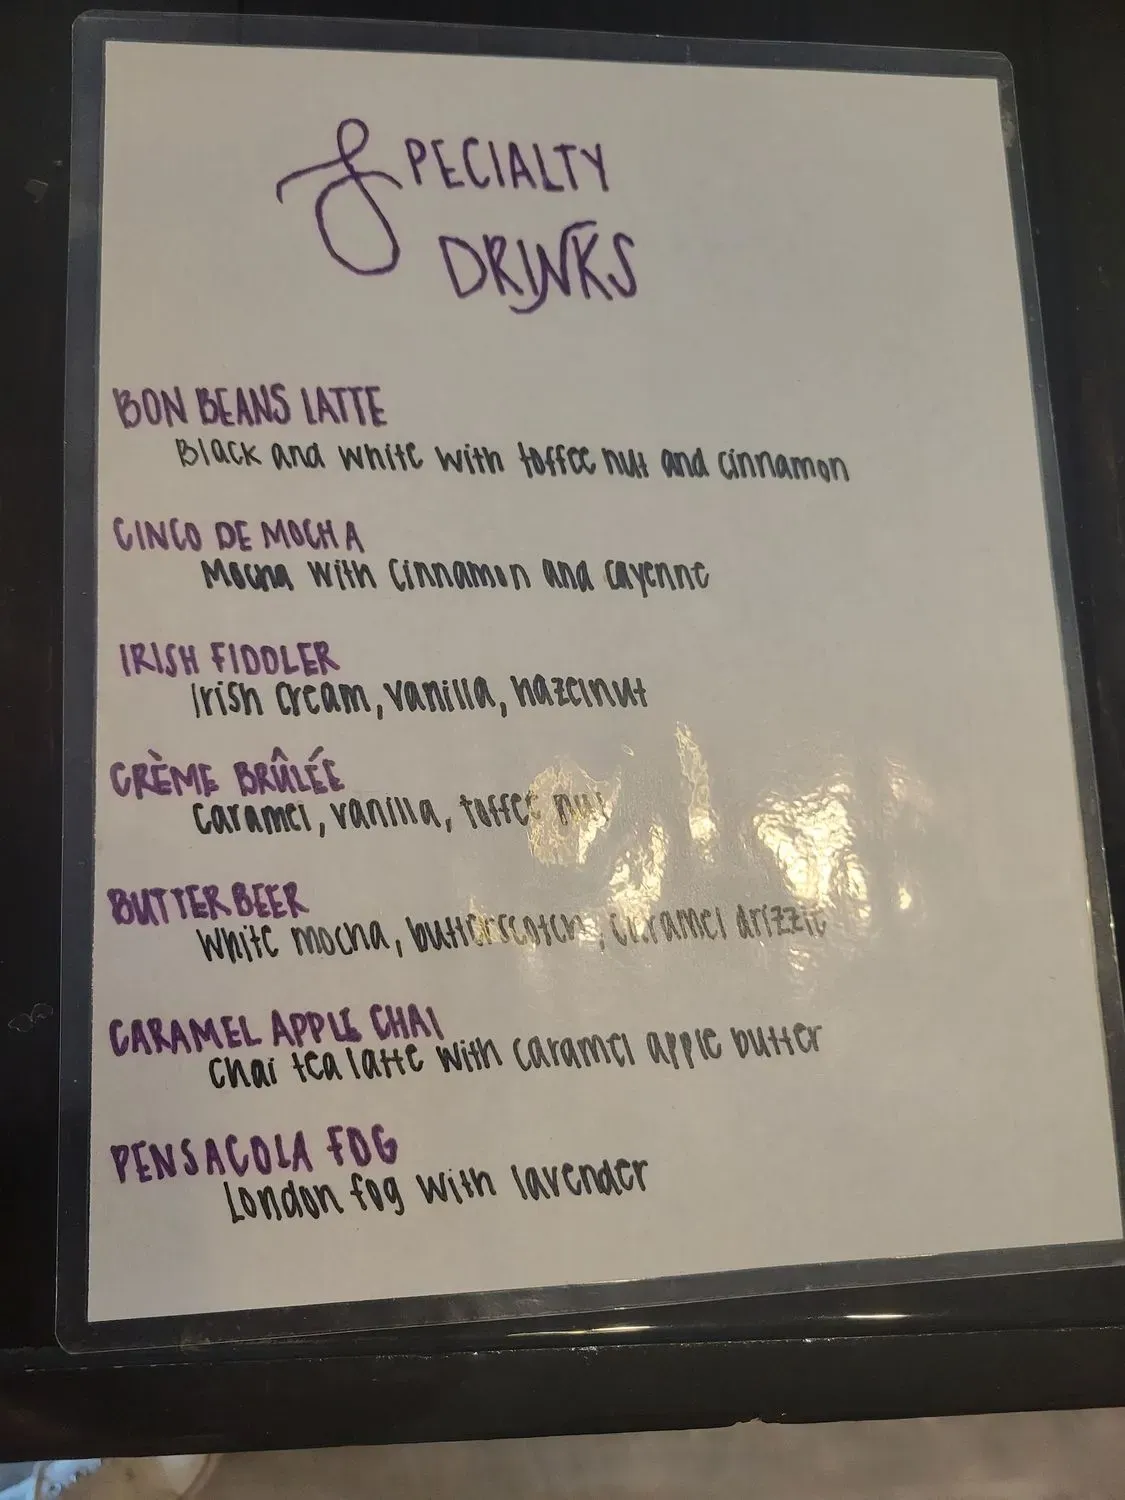 SPECIALTY
DRINKS
BON BEANS LATTE
Black and white with toffee nut and cinnamon
CINCO DE MOCHA
Mocha with Cinnamon and cayenne
IRISH FIDDLER
Irish Cream, vanilla, hazelnut
CRÈME BRÛLÉE
Caramel, vanilla, toffee nut
BUTTERBEER
White mocha, butterscotch, caramel drizzle
CARAMEL APPLE CHAI
Chai tea latte with caramel apple butter
PENSACOLA FOG
London fog with lavender